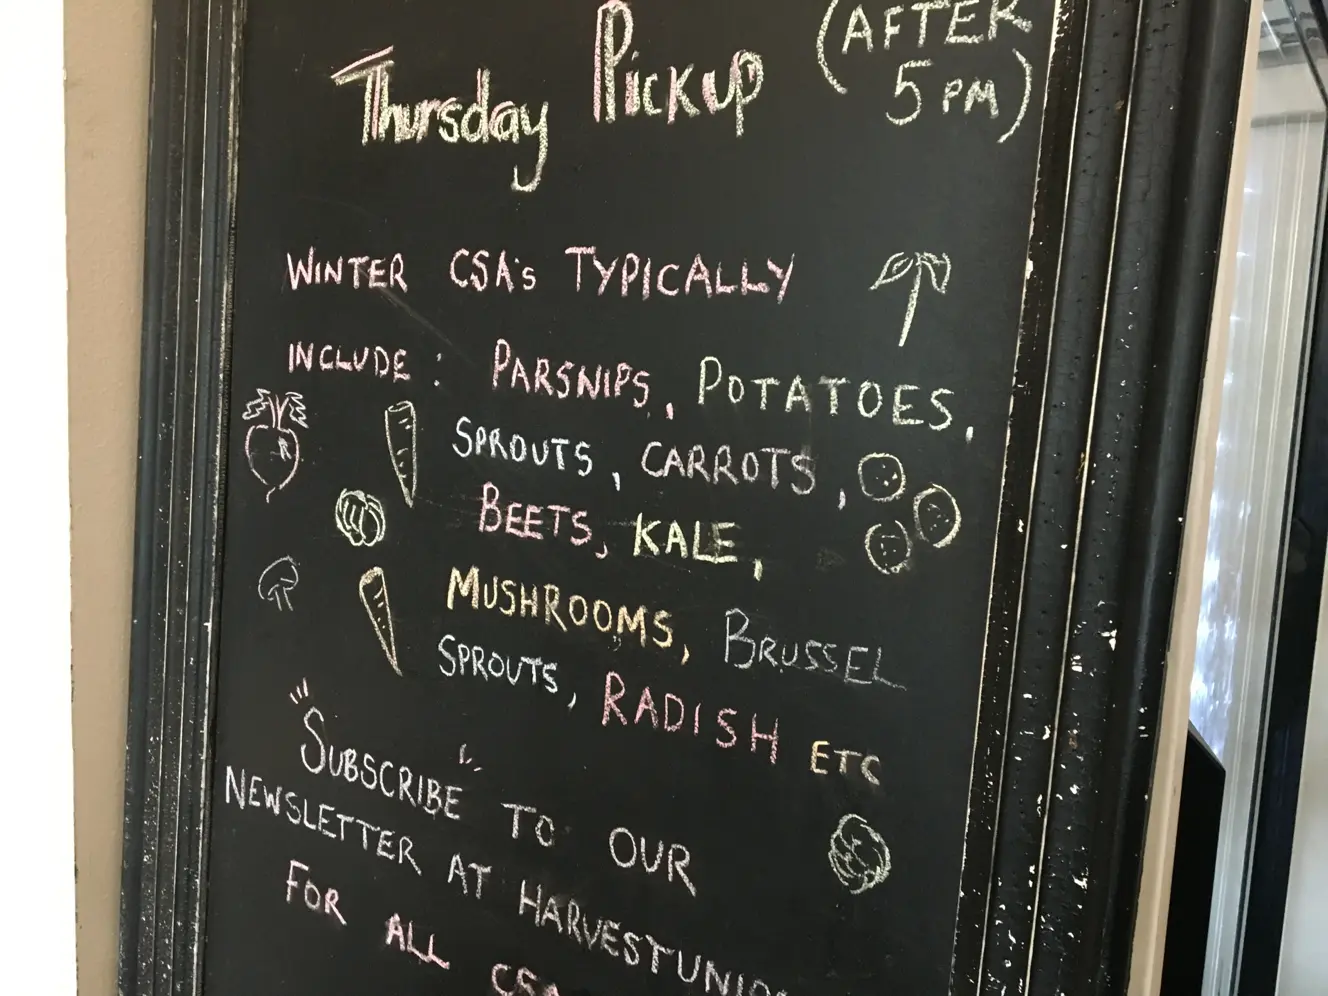 Thursday Pickup (AFTER
5PM)
WINTER CSA's TYPICALLY
INCLUDE: PARSNIPS, POTATOES,
SPROUTS, CARROTS,
BEETS, KALE,
MUSHROOMS, BRUSSEL
SPROUTS, RADISH ETC
"SUBSCRIBE" TO OUR
NEWSLETTER AT
FOR ALL